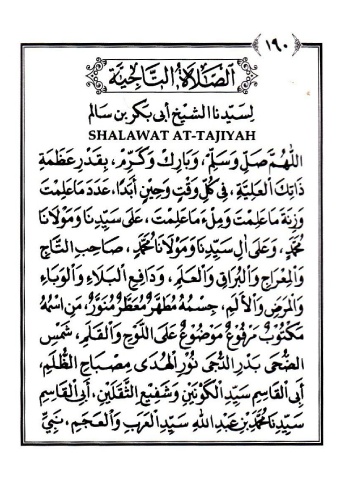 ١٩٠
اَلصَّلَاةُ التَّاجِيَّةُ
لِسَيِّدِنَا الشَّيْخِ أَبِي بَكْرِ بْنِ سَالِمٍ
SHALAWAT AT-TAJIYAH
اَللّٰهُمَّ صَلِّ وَسَلِّمْ، وَبَارِكْ وَكَرِّمْ، بِقَدْرِ عَظَمَةِ
ذَاتِكَ الْعَلِيَّةِ، فِي كُلِّ وَقْتٍ وَحِيْنٍ أَبَدًا، عَدَدَ مَا عَلِمْتَ
وَزِنَةَ مَا عَلِمْتَ وَمِلْءَ مَا عَلِمْتَ، عَلَى سَيِّدِنَا وَمَوْلَانَا
مُحَمَّدٍ، وَعَلَى أٰلِ سَيِّدِنَا وَمَوْلَانَا مُحَمَّدٍ، صَاحِبِ التَّاجِ
وَالْمِعْرَاجِ وَالْبُرَاقِ وَالْعَلَمِ، وَدَافِعِ الْبَلَاءِ وَالْوَبَاءِ
وَالْمَرَضِ وَالْأَلَمِ، جِسْمُهُ مُطَهَّرٌ مُعَطَّرٌ مُنَوَّرٌ، مَنِ اسْمُهُ
مَكْتُوْبٌ مَرْفُوْعٌ مَوْضُوْعٌ عَلَى اللَّوْحِ وَالْقَلَمِ، شَمْسِ
الضُّحَى بَدْرِ الدُّجَى نُوْرِ الْهُدَى مِصْبَاحِ الظُّلَمِ،
أَبِي الْقَاسِمِ سَيِّدِ الْكَوْنَيْنِ وَشَفِيْعِ الثَّقَلَيْنِ، أَبِي الْقَاسِمِ
سَيِّدِنَا مُحَمَّدِ بْنِ عَبْدِ اللّٰهِ سَيِّدِ الْعَرَبِ وَالْعَجَمِ، نَبِيِّ